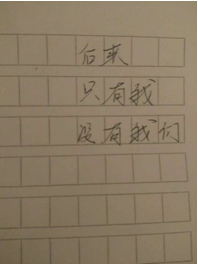 后来
只有我
没有我们